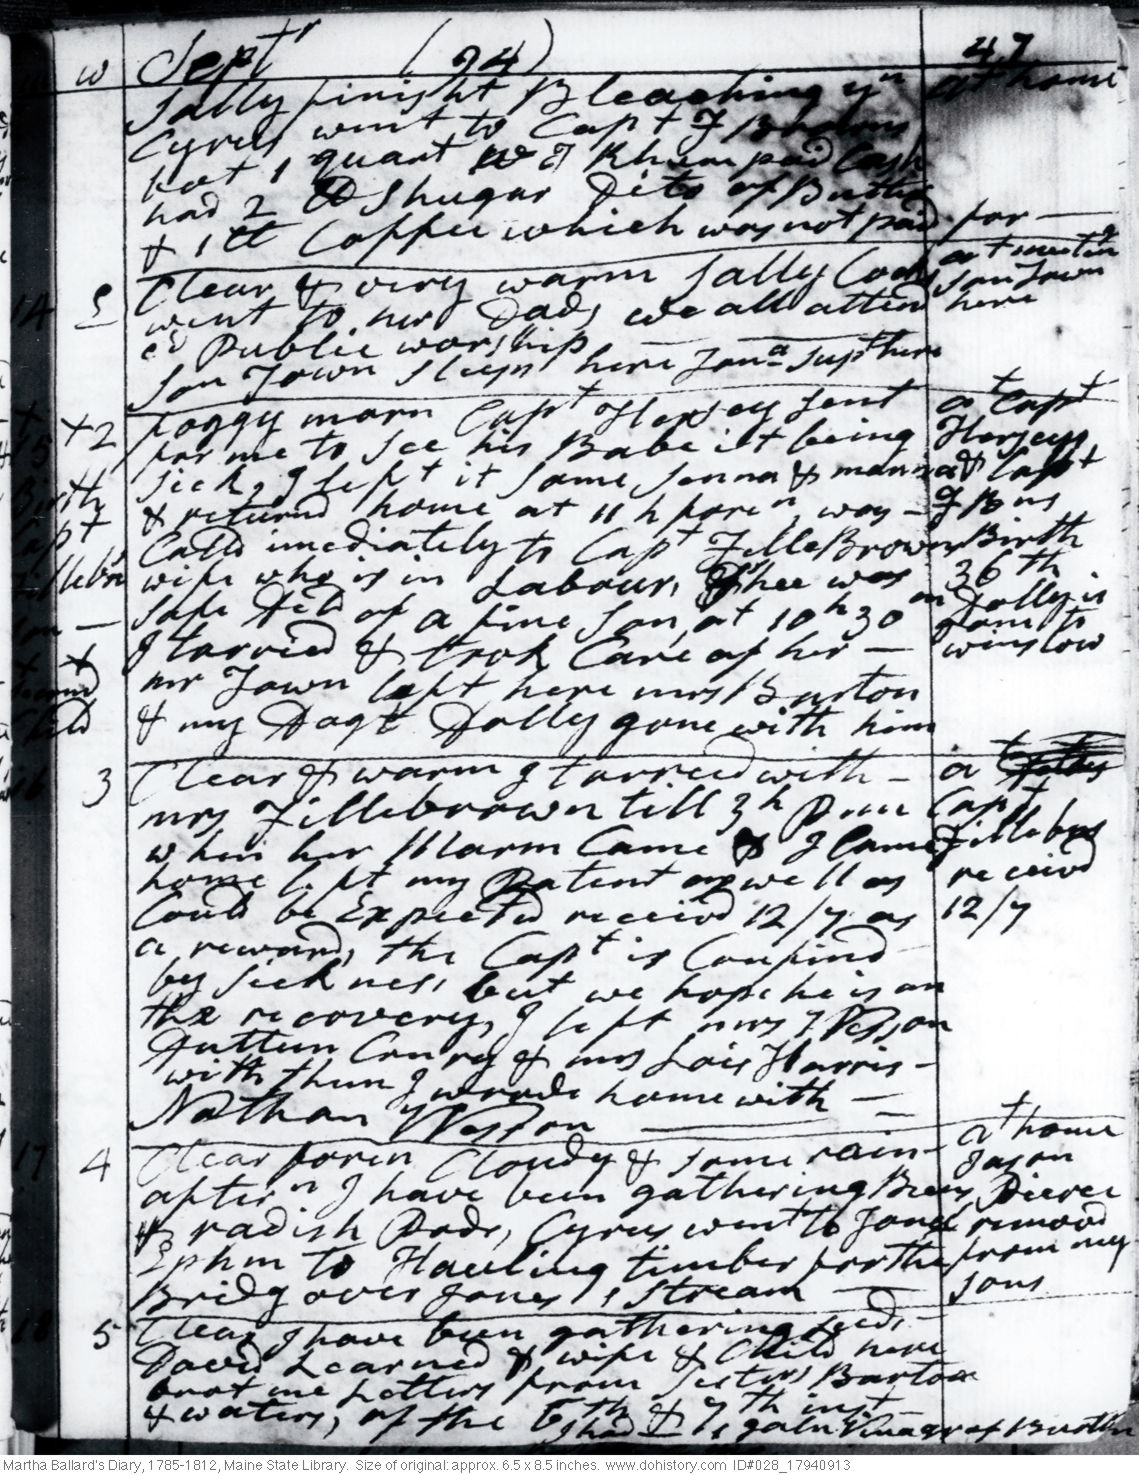 W Sept^r (94) 47
Sally finisht Bleaching y^n at home
Cyrus went to Capt J Browns
bot 1 quart W J Rhum paid Cash
had 2 lb Shugar Dito of Butter
& 1 lb Coffee which was not paid for —
14 E Clear & very warm Sally Cock at meeting
went to her Dads we all attend son Town
ed Public worship — here
son Town sleeps here Jon^a sup^t here
15 x2 foggy morn Cap^t Hersey sent at Cap^t
for me to see his Babe it being Herseys
sick, I left it some senna & manna & Cap^t
Birth & returnd home at 11 h foren^n, was – F Bns
Cap^t Calld imediately to Cap^t FilleBrowns Birth
Fillebn wife who is in Labour, Shee was 36th
son — safe dld of a fine son, at 10 h 30 m Dolly is
I tarried & took Care of her — gone to
winslow
second mr Town left here mrs Burton
Child & my Dagt Dolly gone with him
16 3 Clear & warm I tarried with – at
mrs Fillebrown till 3 h Pm Capt
when her Marm Came & I Came Fillebns
home left my Patent as well as receivd
Could be Expected receivd 12/7 as 12/7
a reward, the Cap^t is Confind
by sickness but we hope he is on
the recovery, I left mrs Wesson
Duttun Conry & mrs Lois Harris –
with them I wrode home with —
Nathan Wesson —
17 4 Clear foren Cloudy & some rain at home
after^n I have been gathering Beens Jason
& radish Pods, Cyrus went to Jona Pierce
Ephm to Hauling timber for the removd
Bridg over Jones, s stream — from my
sons
18 5 Clear I have been gathering seeds
David Learned & wife & Child here
brot me Letters from Sisters Barton
& waters, of the 6th & 7th inst
had 1 galn Vinagr of Burtun
Martha Ballard's Diary, 1785-1812, Maine State Library. Size of original: approx. 6.5 x 8.5 inches. www.dohistory.com ID#028_17940913